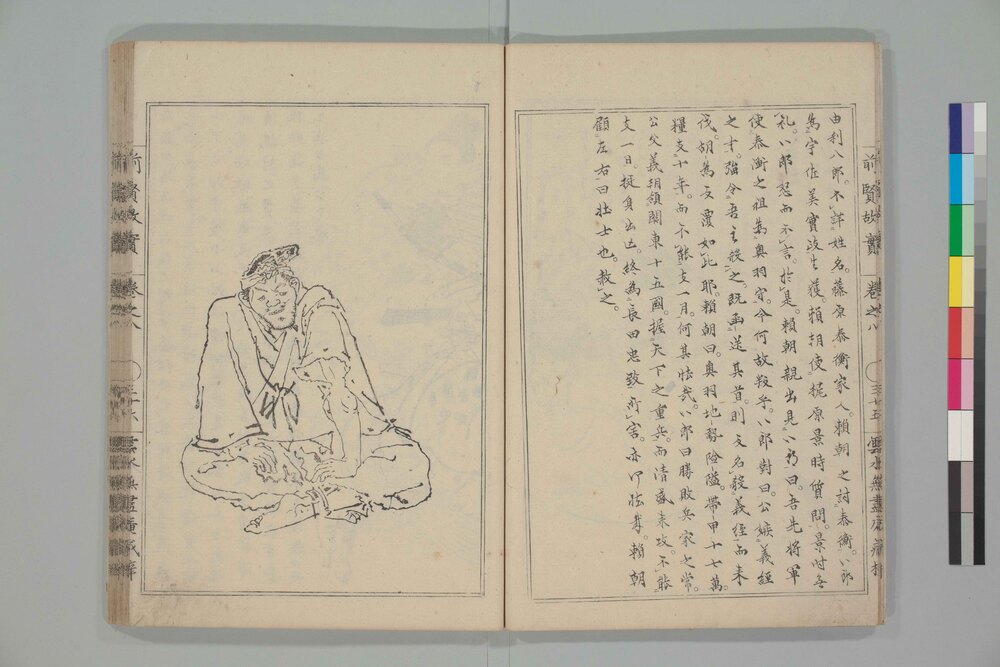 由利八郎。不詳姓名。藤原泰衡家人。賴朝之討泰衡。八郎
爲宇佐美實政生獲。賴朝使梶原景時質問。景時無
礼。八郎怒而不言。於是。賴朝親出見八郎曰。吾先將軍
使泰衡之祖爲奥羽守。今何故叛乎。八郎對曰。公嫉義經
之才。強令吾主殺之。既函送其首。則又名殺義經而来
伐。胡爲反覆如此耶。賴朝曰。奥羽地勢險隘。帶甲十七萬。
糧支十年。而不能支一月。何其怯哉。八郎曰。勝敗兵家之常。
公父義朝領關東十五國。握天下之重兵。而清盛来攻。不能
支一日。挺身出亡。終爲長田忠致所害。亦可怯耳。賴朝
顧左右曰。壮士也。赦之。
前賢故實 卷之八 三十五 雲水無盡庵
前賢故實 卷之八